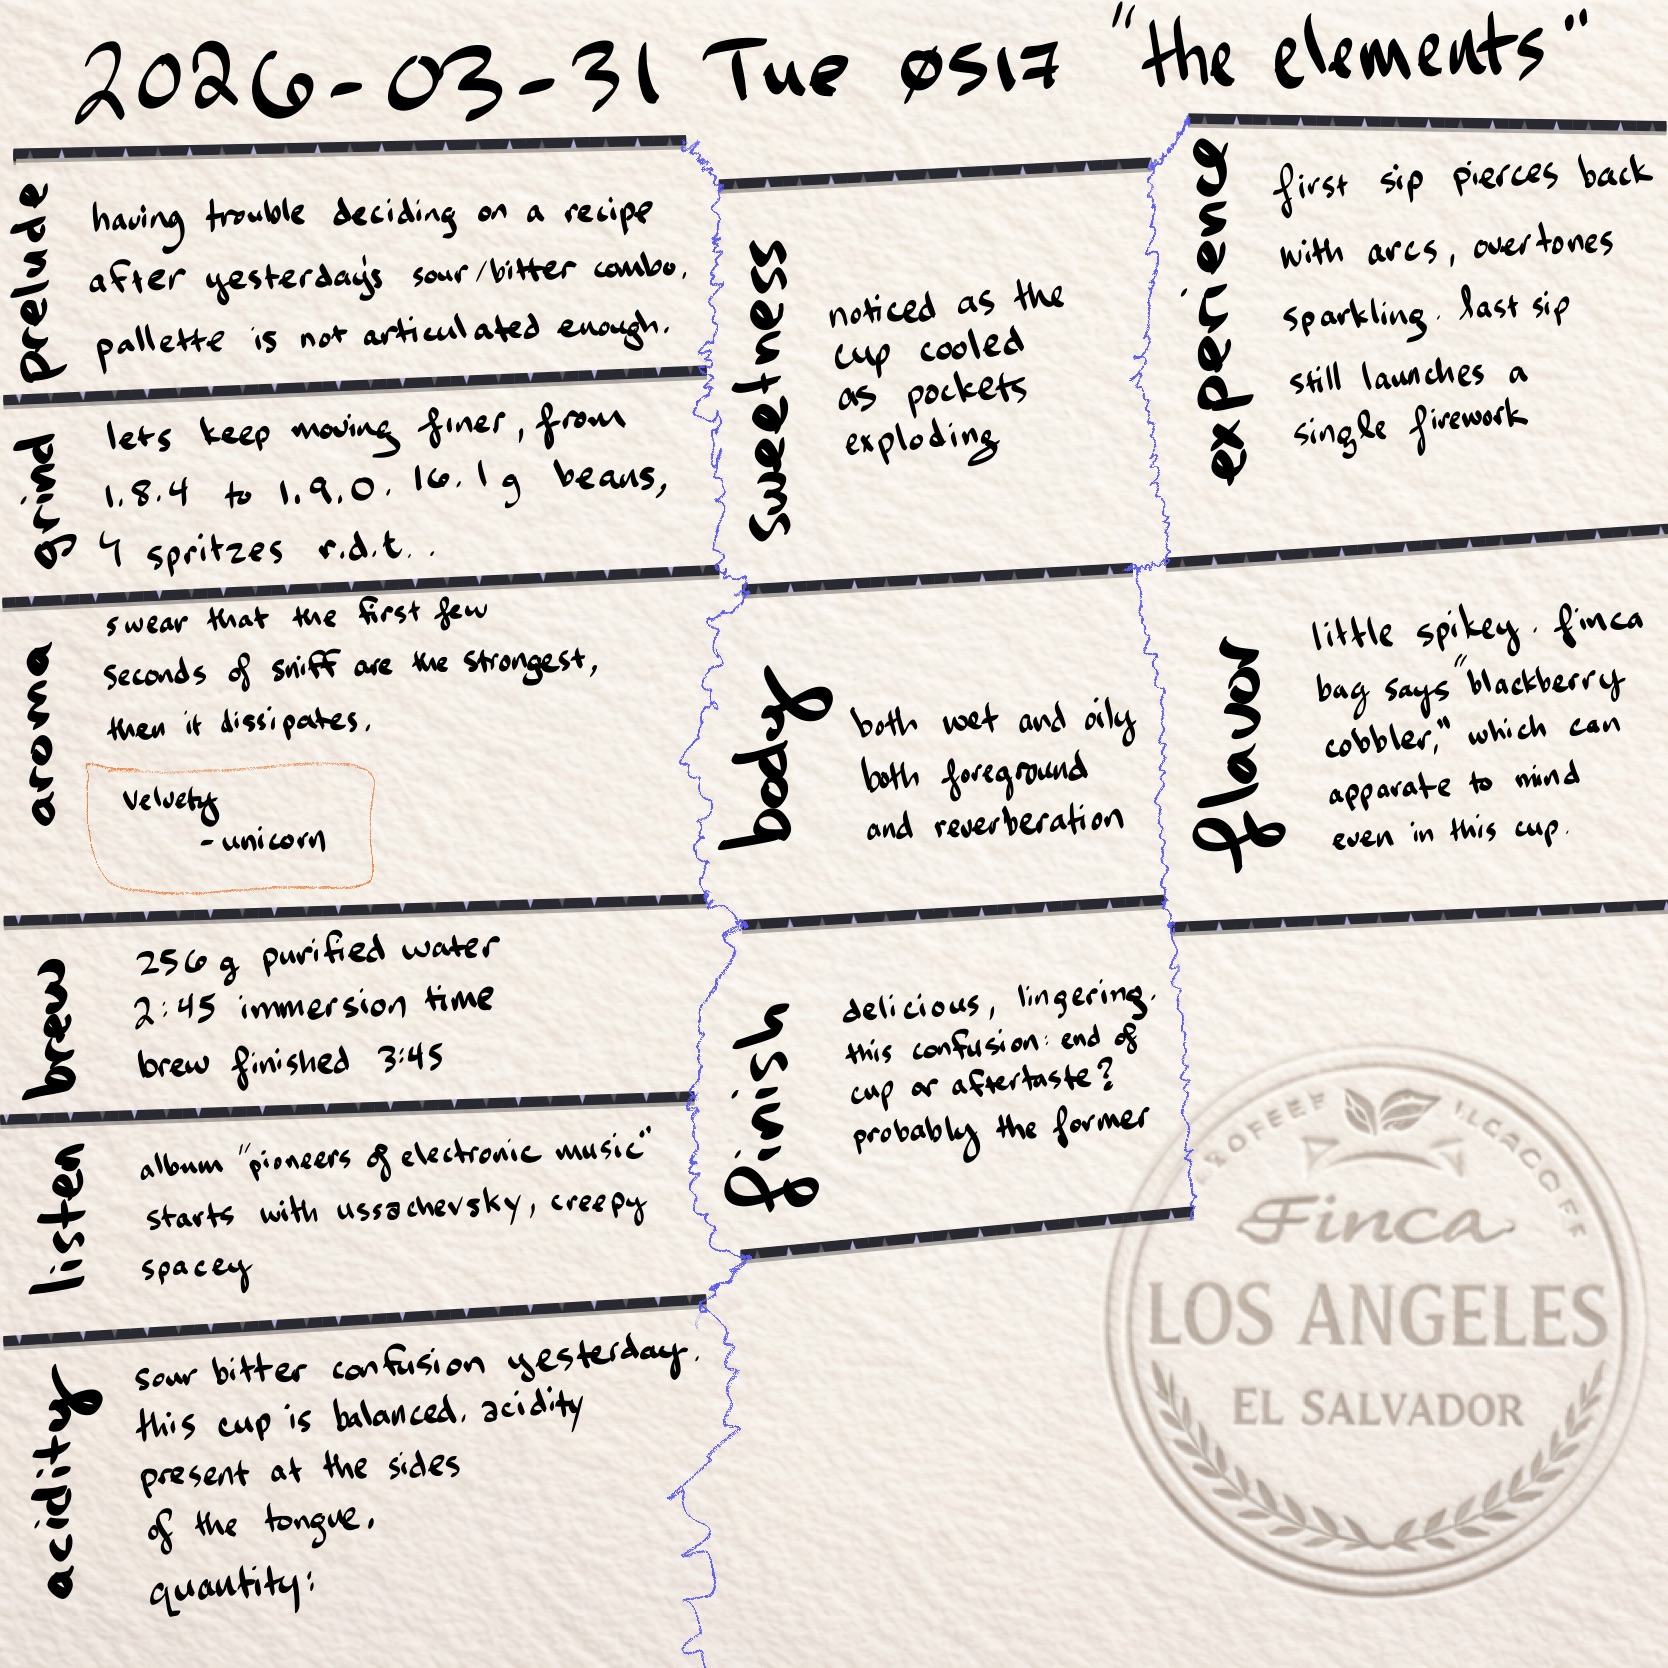 2026-03-31 Tue Ø517 "the elements"
prelude
having trouble deciding on a recipe
after yesterday's sour/bitter combo.
pallette is not articulated enough.
grind
lets keep moving finer, from
1.8.4 to 1.9.0. 16.1g beans,
4 spritzes r.d.t..
aroma
swear that the first few
seconds of sniff are the strongest,
then it dissipates.
velvety
-unicorn
brew
256 g purified water
2:45 immersion time
brew finished 3:45
listen
album "pioneers of electronic music"
starts with ussachevsky, creepy
spacey
acidity
sour bitter confusion yesterday.
this cup is balanced. acidity
present at the sides
of the tongue.
quantity:
sweetness
noticed as the
cup cooled
as pockets
exploding
body
both wet and oily
both foreground
and reverberation
finish
delicious, lingering.
this confusion: end of
cup or aftertaste?
probably the former
experience
first sip pierces back
with arcs, overtones
sparkling. last sip
still launches a
single firework
flavor
little spikey. finca
bag says "blackberry
cobbler," which can
apparate to mind
even in this cup.
Finca
LOS ANGELES
EL SALVADOR